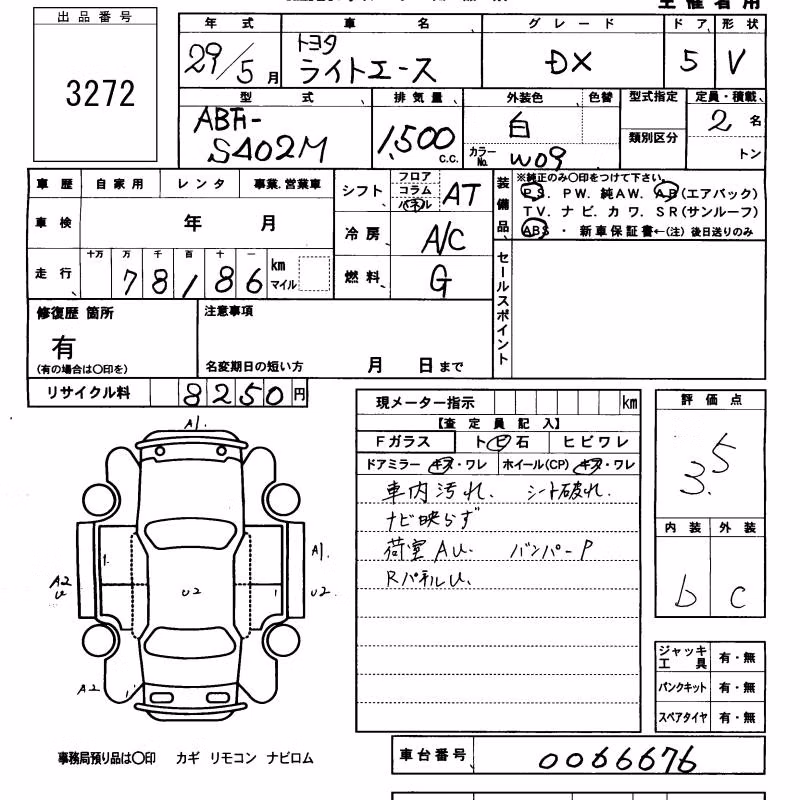 出品番号
3272
年式 車名 グレード ドア 形状
29/5月 トヨタ ライトエース DX 5 V
型式 排気量 外装色 色替 型式指定 定員・積載
ABF-
S402M 1,500 c.c. 白 2名
カラーNo. W09 類別区分 トン
車歴 自家用 レンタ 事業.営業車
車検 年 月
走行 十万 万 千 百 十
78186 km マイル
シフト フロア コラム パネル AT
冷房 A/C
燃料 G
装備品
※純正のみ〇印をつけて下さい。
P S. P W. 純 A W. A B (エアバック)
T V. ナビ. カワ. S R (サンルーフ)
ABS ・ 新車保証書←(注) 後日送りのみ
セールスポイント
修復歴 箇所
有
(有の場合は〇印を)
注意事項
名変期日の短い方 月 日まで
リサイクル料 8250円
現メーター指示 km
【査定員記入】
Fガラス トビ石 ヒビワレ
ドアミラー キズ・ワレ ホイール(CP) キズ・ワレ
車内汚れ. シート破れ.
ナビ映らず
荷室AU. バンパーP
RパネルU.
評価点
3.5
内装 外装
b c
ジャッキ工具 有・無
パンクキット 有・無
スペアタイヤ 有・無
A1.
A1.
1.
A2
U
U2
1
U2.
A2
1
事務局預り品は〇印 カギ リモコン ナビロム
車台番号 0066676